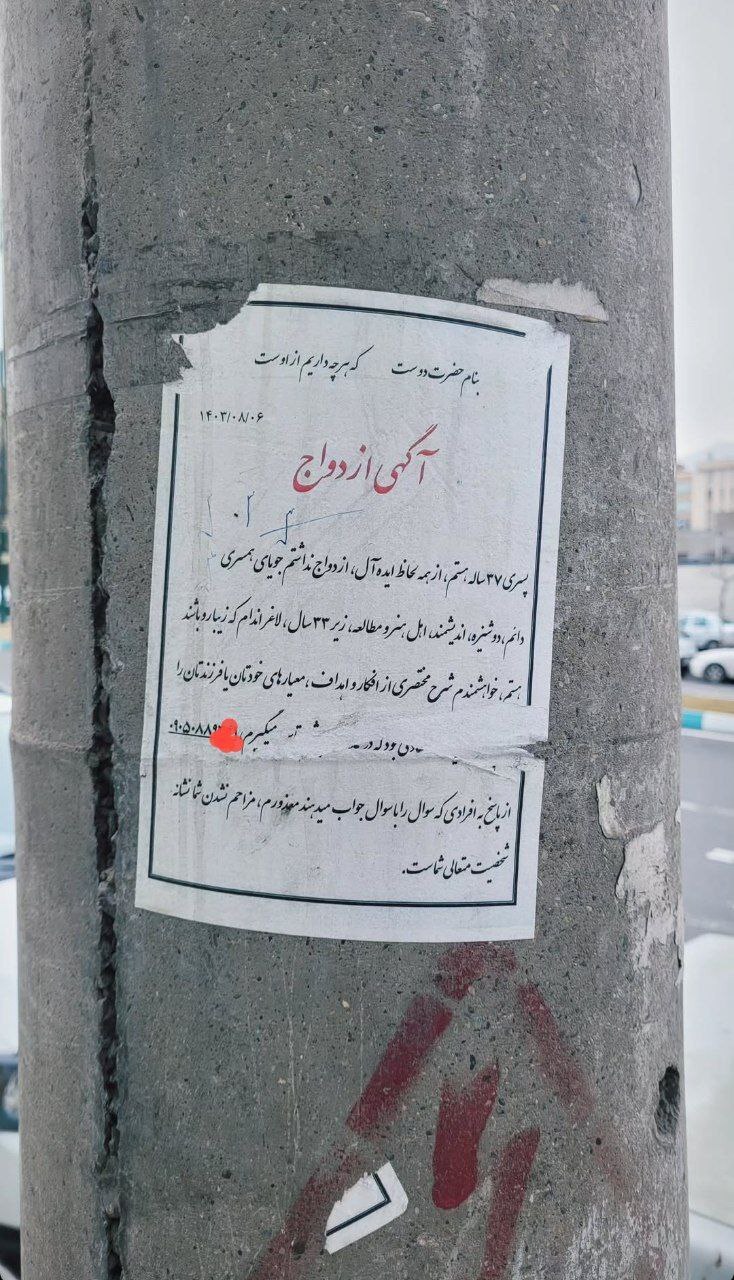 بنام حضرت دوست که هر چه داریم از اوست
۱۴۰۳/۰۸/۰۶
آگهی ازدواج
پسری ۳۷ ساله هستم، از همه لحاظ ایده آل، ازدواج نداشتم جویای همسری
دائم، دوشیزه، اندیشمند، اهل هنر و مطالعه، زیر ۳۳ سال، لاغر اندام که زیبارو باشند
هستم، خواهشمندم شرح مختصری از افکار و اهداف، معیارهای خودتان یا فرزندتان را
میگیرم، ۰۹۰۵۰۸۸۹
از پاسخ به افرادی که سوال را با سوال جواب میدهند معذورم، مزاحم نشدن شما نشانه
شخصیت متعالی شماست.